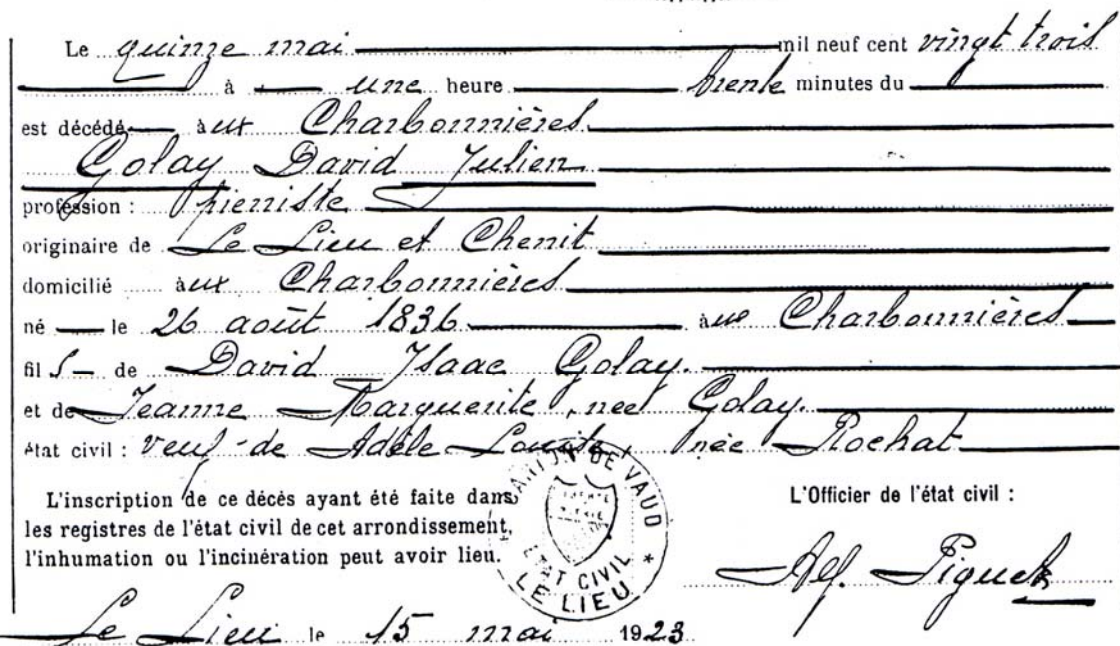 Le quinze mai mil neuf cent vingt trois
à une heure trente minutes du
est décédé à ux Charbonnières
Golay David Julien
profession : pierriste
originaire de Le Lieu et Chenit
domicilié à ux Charbonnières
né le 26 août 1836 à ux Charbonnières
fil s de David Isaac Golay.
et de Jeanne Marguerite, née Golay.
état civil : veuf de Adèle Louise, née Rochat
L'inscription de ce décès ayant été faite dans
les registres de l'état civil de cet arrondissement,
l'inhumation ou l'incinération peut avoir lieu.
CANTON DE VAUD
ÉTAT CIVIL
LE LIEU
L'Officier de l'état civil :
Alf. Piguet
Le Lieu le 15 mai 1923